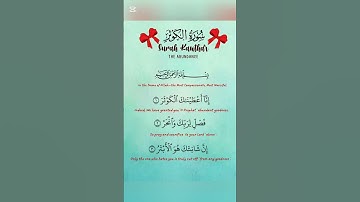 سُورَةُ الكَوْثَر
Surah Kauthar
THE ABUNDANCE
بِسْمِ اللَّهِ الرَّحْمَٰنِ الرَّحِيمِ
In the Name of Allah—the Most Compassionate, Most Merciful.
إِنَّا أَعْطَيْنَاكَ الْكَوْثَرَ ١
Indeed, We have granted you ˹O Prophet˺ abundant goodness.
فَصَلِّ لِرَبِّكَ وَانْحَرْ ٢
So pray and sacrifice to your Lord ˹alone˺.
إِنَّ شَانِئَكَ هُوَ الْأَبْتَرُ ٣
Only the one who hates you is truly cut off ˹from any goodness˺.